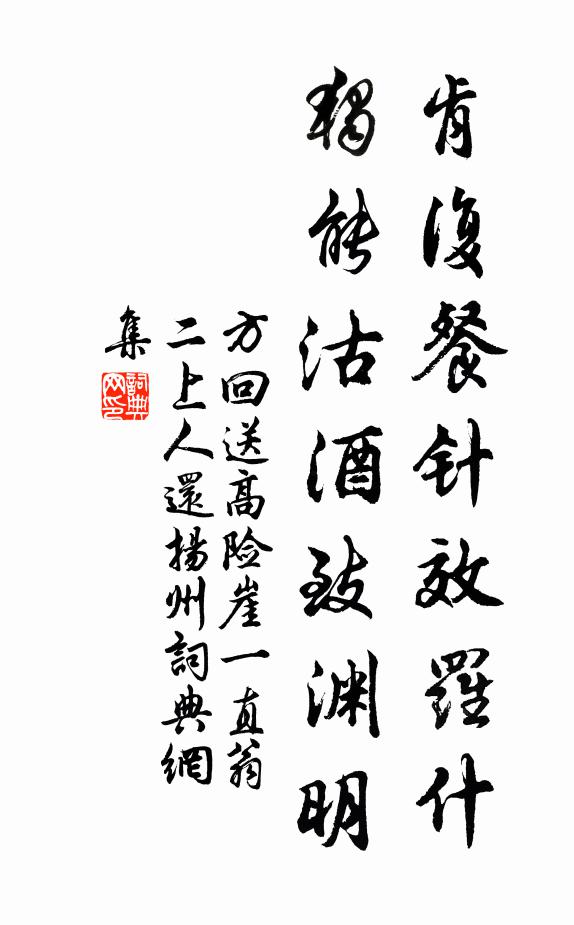 肯復餐针效羅什
獨能沽酒致渊明
方回送高险崖一直翁
二上人還揚州詞典網
集
詞典网印